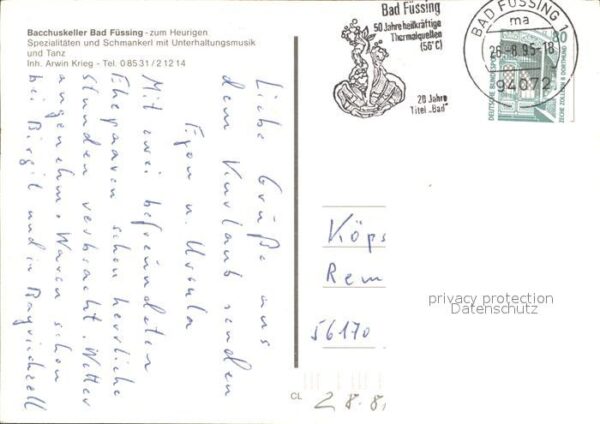 Bacchuskeller Bad Füssing - zum Heurigen
Spezialitäten und Schmankerl mit Unterhaltungsmusik
und Tanz
Inh. Arwin Krieg - Tel. 0 85 31 / 2 12 14
Liebe Grüße aus
dem Kurlaub senden
Egon u. Ursula
Mit zwei befreundeten
Ehepaaren schon herrliche
Stunden verbracht. Wetter
angenehm. Waren schon
bei Birgit und in
Bad Füssing
50 Jahre heilkräftige
Thermalquellen
(56°C)
20 Jahre
Titel „Bad"
BAD FÜSSING 1
ma
28.-8.95-18
94072
80
DEUTSCHE BUNDESPOST
ZECHE ZOLLERN II DORTMUND
Köps
Rem
56170
privacy protection
Datenschutz
CL
28.8.